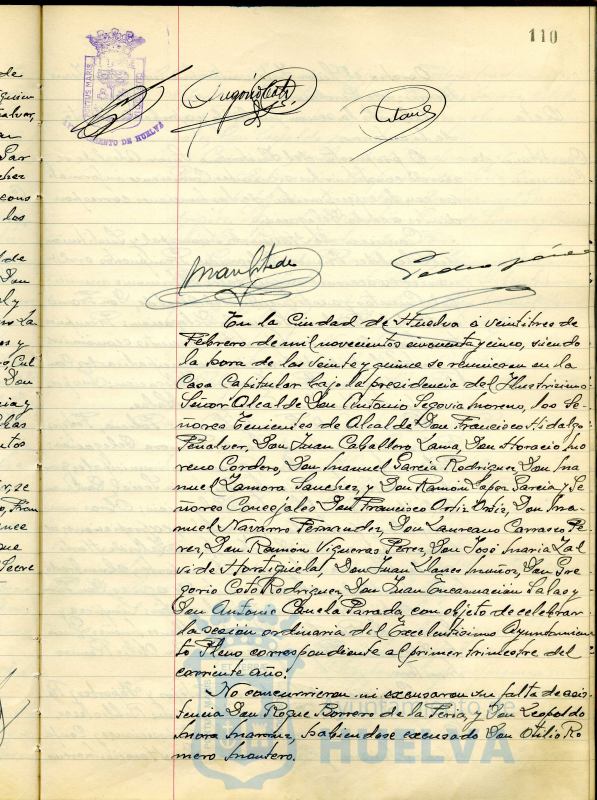 110
PORTUS MARIS
AYUNTAMIENTO DE HUELVA
En la Ciudad de Huelva a veintitres de
Febrero de mil novecientos cincuenta y cinco, siendo
la hora de las veinte y quince se reunieron en la
Casa Capitular bajo la presidencia del Ilustrisimo
Señor Alcalde Don Antonio Segovia Moreno, los Se-
ñores Tenientes de Alcalde Don Francisco Hidalgo
Peñalver, Don Juan Caballero Lama, Don Horacio Mo
reno Cordero, Don Manuel Garcia Rodriguez, Don Ma
nuel Zamora Sanchez, y Don Ramón Garcia y Se
ñores Concejales Don Francisco Ortiz Ortiz, Don Ma-
nuel Navarro Fernandez, Don Laureano Carrasco Pe-
rez, Don Ramón Vigueras Perez, Don José Maria Zal
vide Don Juan Llanes Muñoz, Don Gre
gorio Coto Rodriguez, Don Juan Encarnacion Salas y
Don Antonio Parada, con objeto de celebrar
la sesión ordinaria del Excelentisimo Ayuntamien
to Pleno correspondiente al primer trimestre del
corriente año.
No concurrieron ni excusaron su falta de asis
tencia Don Roque Borrero de la Feria, y Don Leopoldo
Mora habiendose excusado Don Otilio Ro
mero Montero.
Ayuntamiento de
HUELVA